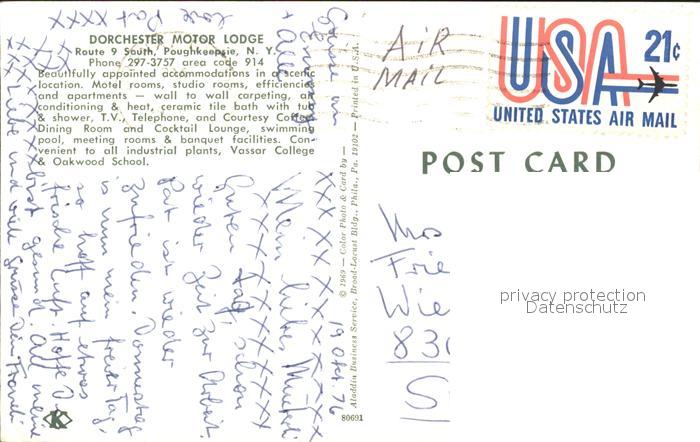 DORCHESTER MOTOR LODGE
Route 9 South, Poughkeepsie, N. Y.
Phone 297-3757 area code 914
Beautifully appointed accommodations in a scenic
location. Motel rooms, studio rooms, efficiencies
and apartments — wall to wall carpeting, air
conditioning & heat, ceramic tile bath with tub
& shower, T.V., Telephone, and Courtesy Coffee.
Dining Room and Cocktail Lounge, swimming
pool, meeting rooms & banquet facilities. Con-
venient to all industrial plants, Vassar College
& Oakwood School.
© 1969 — Color Photo & Card by —
Aladdin Business Service, Broad-Locust Bldg., Phila., Pa. 19102 — Printed in U.S.A.
80691
K
AIR
MAIL
USA 21c
UNITED STATES AIR MAIL
POST CARD
Mrs
Frie
Wie
830
S
privacy protection
Datenschutz
19 Okt 76
Mein liebes
Guten Tag, schon
wieder Zeit zur Arbeit.
Pat ist wieder
zufrieden. Donnerstag
is nun mein freier Tag,
so hoff auf etwas
frische Luft. Hoffe Du
bist gesund. All meine
Liebe und viele Grüsse Dein
Love Pat xxxx